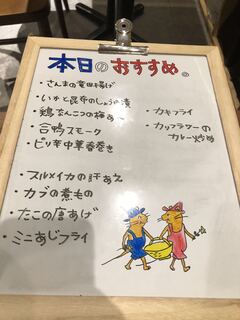 本日のおすすめ。
・さんまの竜田揚げ
・いかと昆布のしょうゆ漬
・鶏なんこつの梅あえ
・合鴨スモーク
・ピリ辛中華春巻き
・カキフライ
・カリフラワーの
カレー炒め
・スルメイカの汁あえ
・カブの煮もの
・たこの唐あげ
・ミニあじフライ